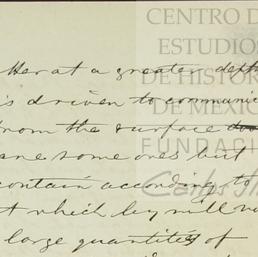 CENTRO DE
ESTUDIOS
DE HISTORIA
DE MÉXICO
FUNDACI
Carlos
Her at a greater depth
is driven to communic
from the surface
are some ones but
contain according to
t which by mill
large quantities of